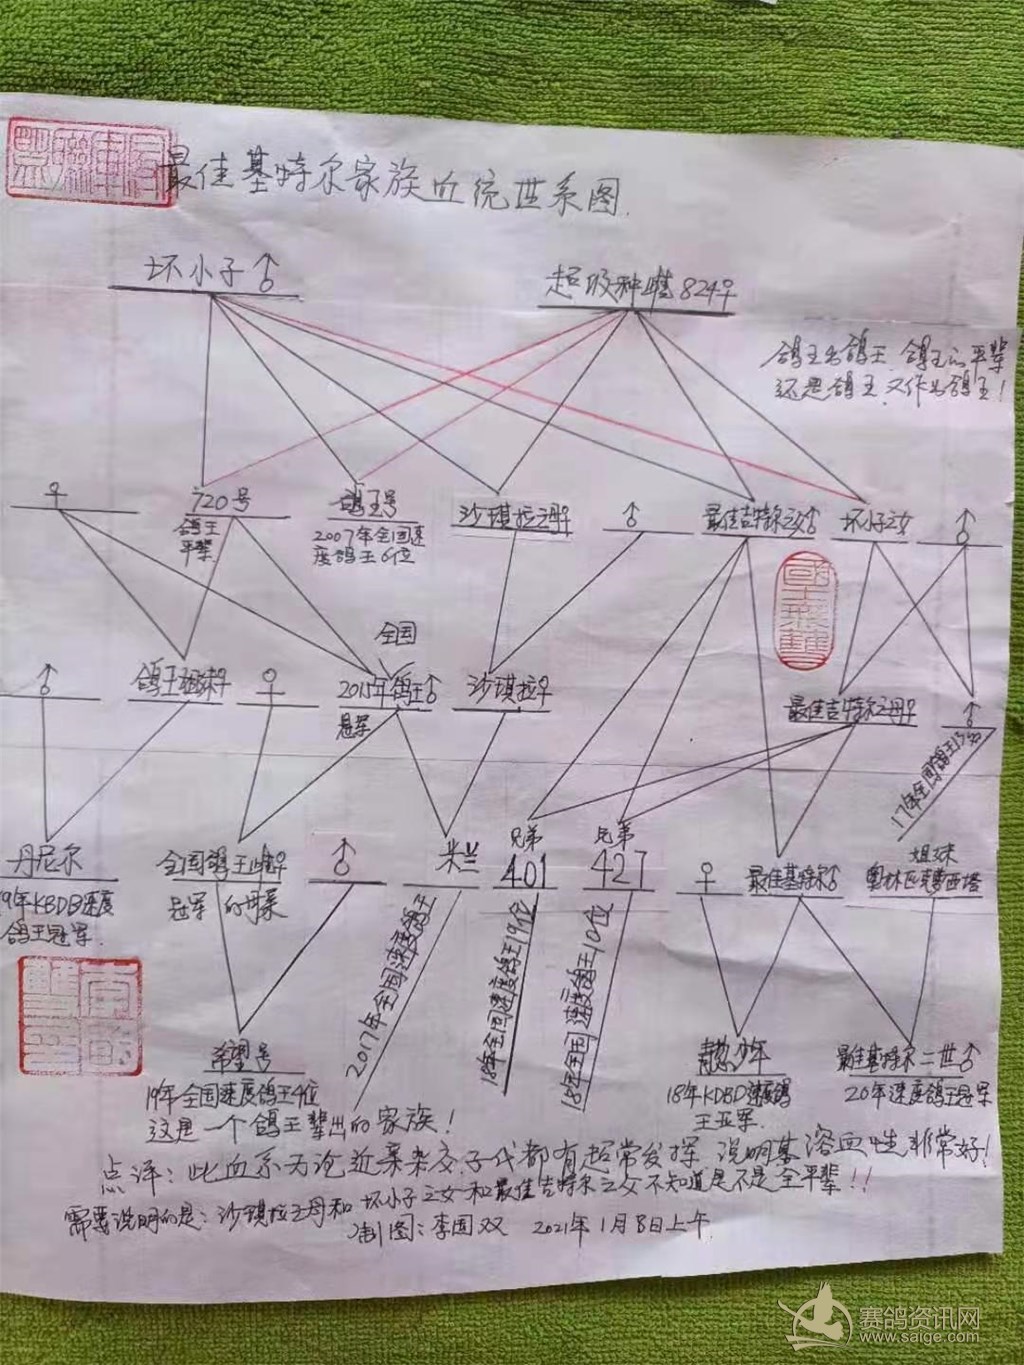 最佳基特尔家族血统世系图.
坏小子♂
超级种雌824♀
鸽王出鸽王,鸽王的平辈
还是鸽王,又作出鸽王!
♀
720号
鸽王
平辈
鸽王号
2007年全国速
度鸽王6位
沙琪拉之母♀
♂
最佳吉特尔之父♂
坏小子之女
♂
全国
♂
鸽王姐妹♀
♀
2015年鸽王♂
冠军
沙琪拉♀
最佳吉特尔之母♀
♂
17年全国鸽王13位
丹尼尔
19年KBDB速度
鸽王冠军.
全国鸽王雌♀
冠军
♂
米兰
2017年全国速度鸽王
兄弟
401
18年全国速度鸽王19位
兄弟
427
18年全国速度鸽王10位
♀
最佳基特尔♂
姐妹
奥林匹克
希望号
19年全国速度鸽王4位
少年
18年KDBD速度鸽
王亚军.
最佳基特尔二世♂
20年速度鸽王冠军
这是一个鸽王辈出的家族!
点评:此血系无论近亲杂交子代都有超常发挥,说明基溶血性非常好!
需要说明的是:沙琪拉之母和坏小子之女和最佳吉特尔之父不知道是不是全平辈!!
制图:李国双 2021年1月8日上午.
赛鸽资讯网
www.saige.com